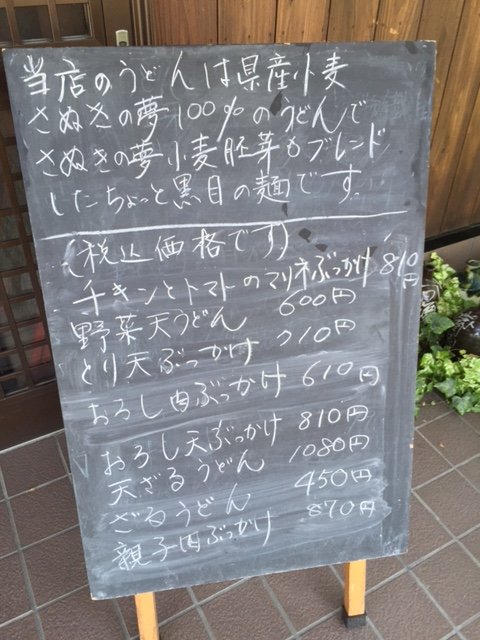 当店のうどんは県産小麦
さぬきの夢100%のうどんで
さぬきの夢小麦胚芽もブレンド
したちょっと黒目の麺です。
(税込価格です)
チキンとトマトのマリネぶっかけ 810円
野菜天うどん 600円
とり天ぶっかけ 710円
おろし肉ぶっかけ 610円
おろし天ぶっかけ 810円
天ざるうどん 1080円
ざるうどん 450円
親子肉ぶっかけ 870円